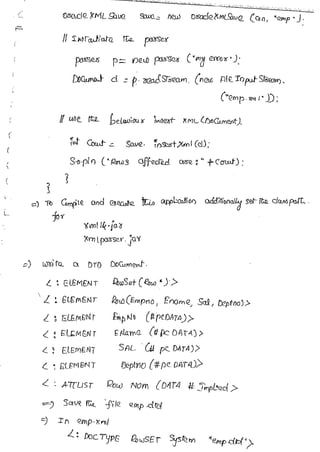 oracle XML Save save = new oracleXMLSave (cn, "emp");
// Instantiate the parser
parser p = new parser ("my error");
Document d = p.readStream. (new File Input Stream.
("emp.xml"));
// use the behaviour insert XML (Document).
int Count = save. insertXml (d);
S.o.pln ("Rows affected are: " + Count);
}
}
=> To Compile and execute this application additionally set the classpath.
for
xml14.jar
xmlparser.jar
=> Write a DTD Document.
<: ELEMENT RowSet (Row *):>
<: ELEMENT Row (Empno, Ename, Sal, Deptno)>
<: ELEMENT EmpNo (#pcDATA)>
<: ELEMENT EName (#pc DATA)>
<: ELEMENT SAL (# pc DATA)>
<: ELEMENT Deptno (#pc DATA)>
<: ATTLIST Row Nom (DATA # Implied >
=> Save the file emp.dtd
=> In emp.xml
<: DOCTYPE RowSET System "emp.dtd">